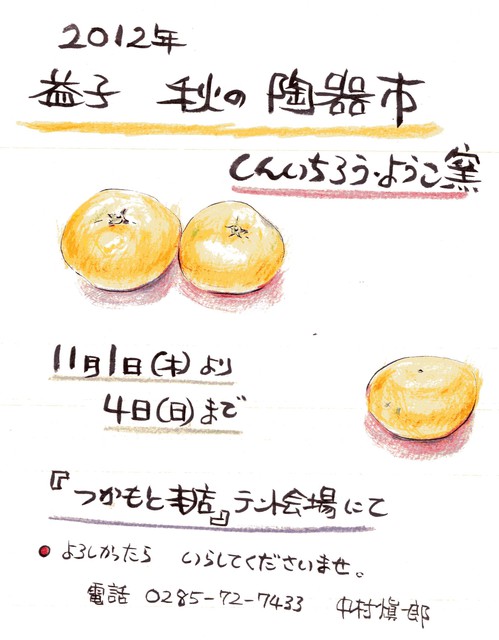 2012年
益子 秋の陶器市
しんいちろう・ようこ窯
11月1日(木)より
4日(日)まで
『つかもと本店』テント会場にて
よろしかったら いらしてくださいませ。
電話 0285-72-7433 中村愼一郎